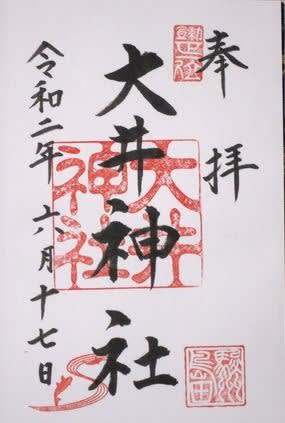 奉拝
大井神社
令和二年 六月十七日
大井
神社